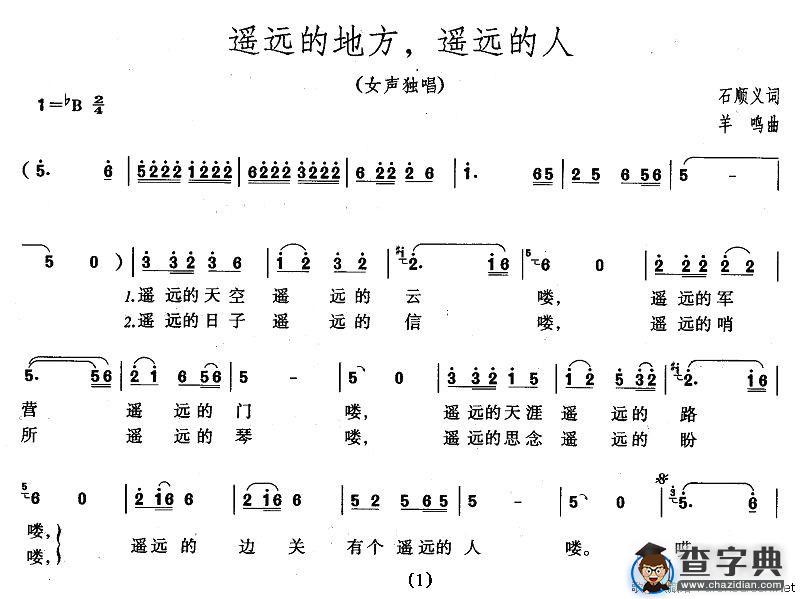 遥远的地方，遥远的人
（女声独唱）
1=♭B 2/4
石顺义词
羊 鸣曲
( 5. 6 | 5222 1222 | 6222 3222 | 6 22 2 6 | 1. 65 | 2 5 6 56 | 5 - |
5 0 ) | 3 32 3 6 | 1 2 32 | 2. 16 | 6 0 | 2 22 2 2 |
1.遥 远的天空 遥 远的 云 喽， 遥 远的军
2.遥 远的日子 遥 远的 信 喽， 遥 远的哨
5. 56 | 2 1 6 56 | 5 - | 5 0 | 3 32 1 5 | 1 2 5 32 | 2. 16 |
营 遥 远的 门 喽， 遥远的天涯 遥 远的 路
所 遥 远的 琴 喽， 遥远的思念 遥 远的 盼
6 0 | 2 16 6 | 2 16 6 | 5 2 5 65 | 5 2 | 5 0 | 5. 6 |
喽，
喽，
遥远的 边 关 有个 遥远的 人 喽。
(1)
查字典
chazidian.com